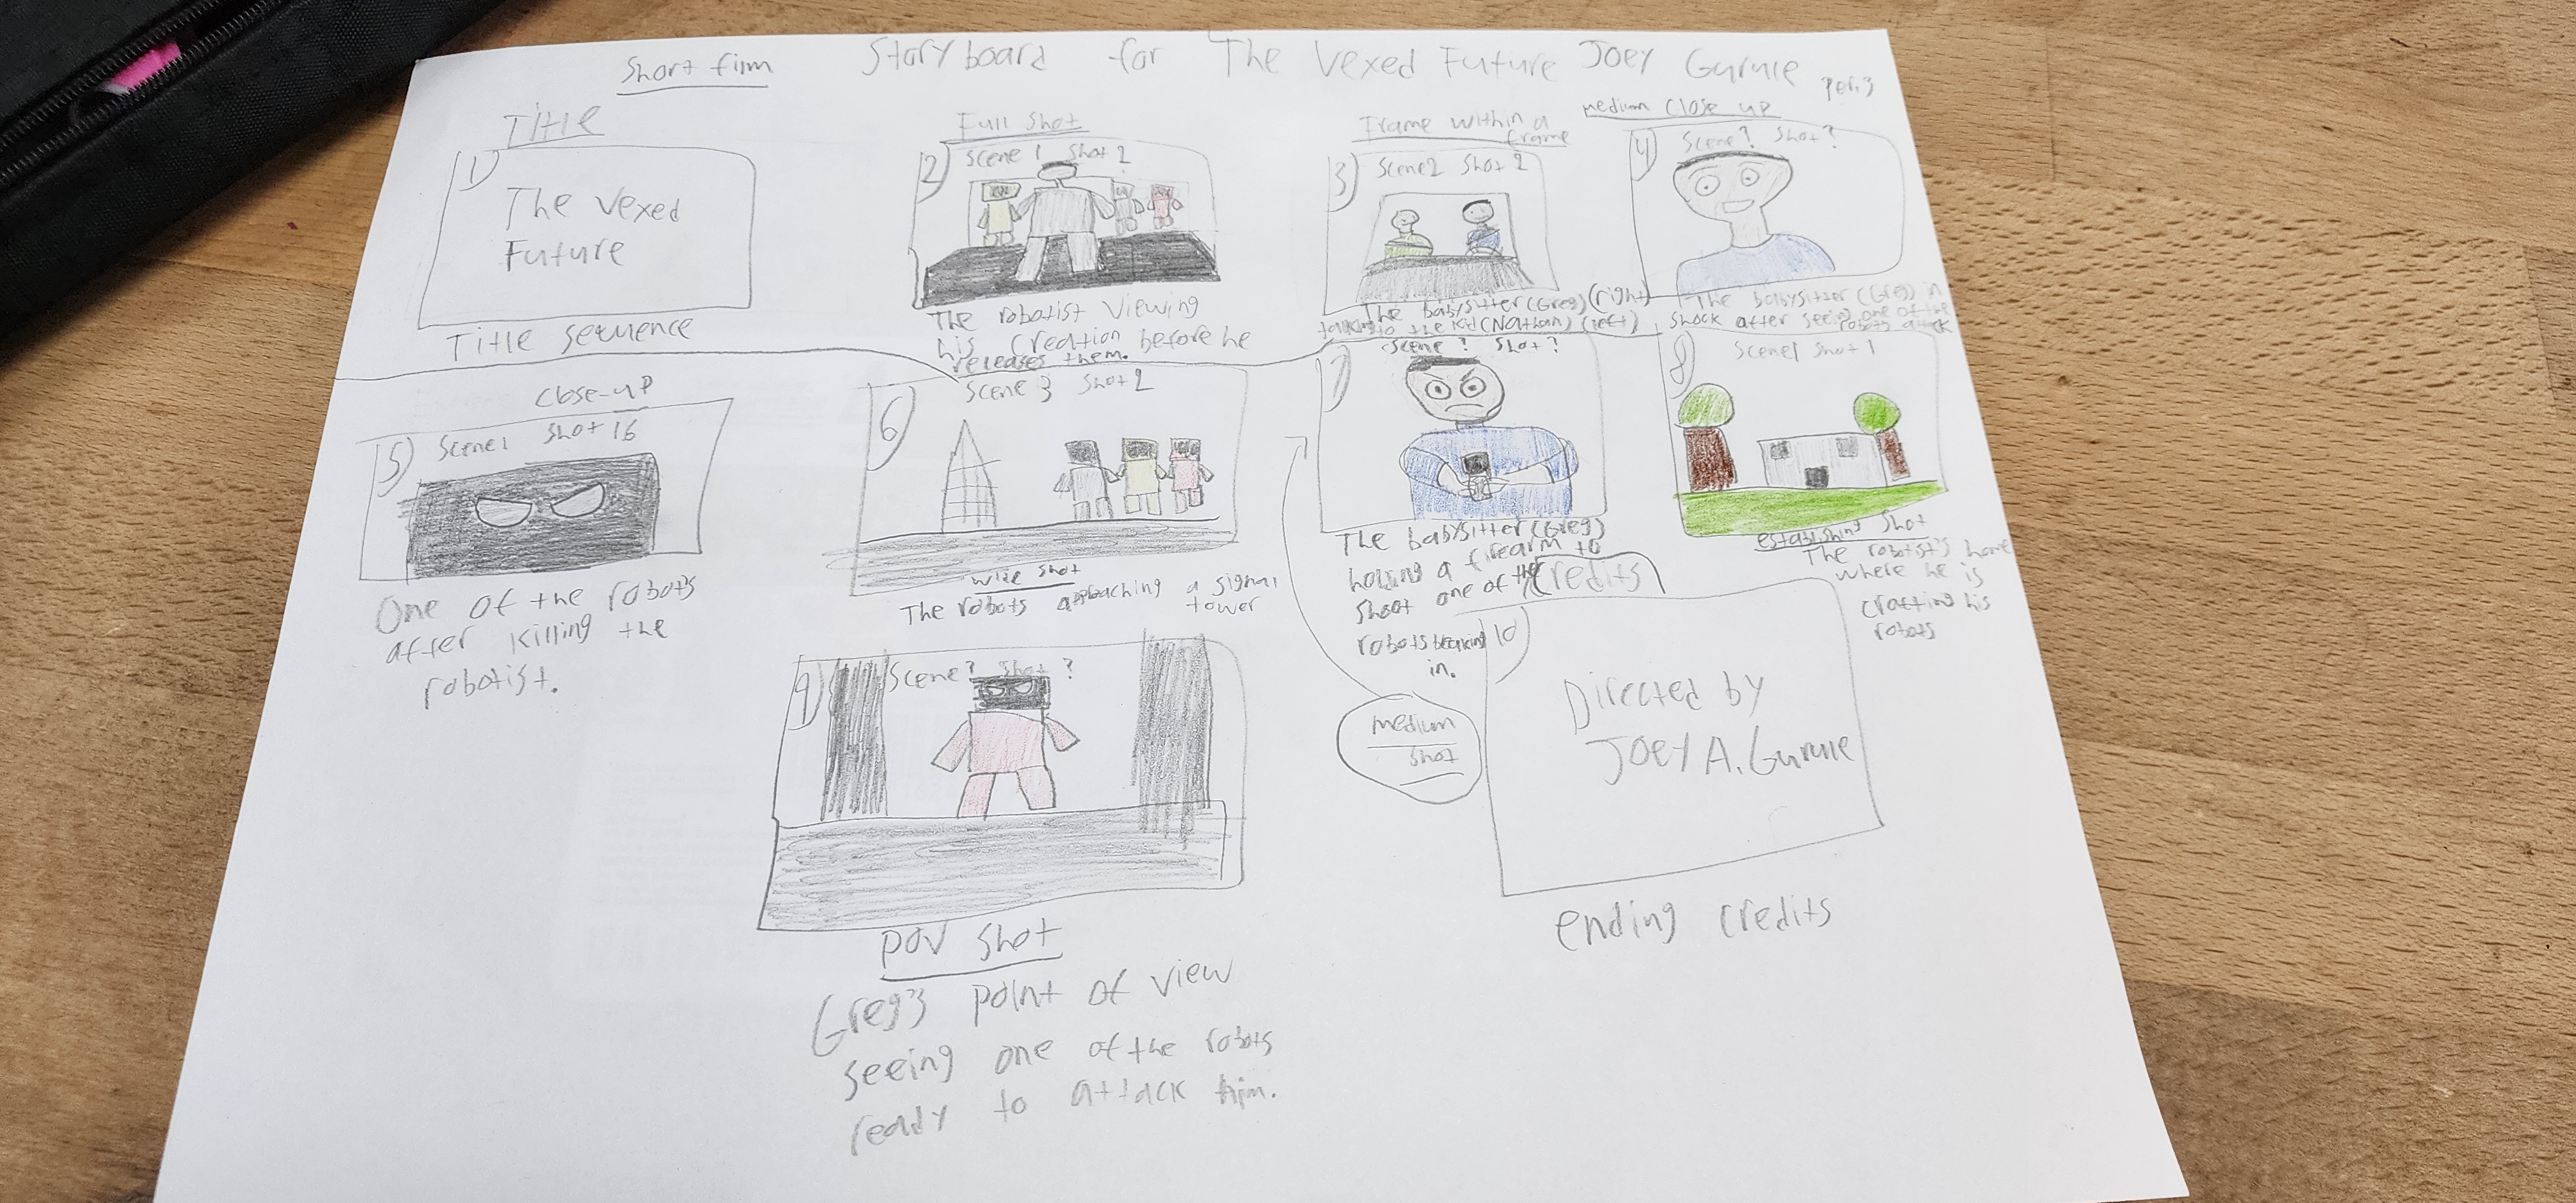 Short film Storyboard for The Vexed Future Joey Gurule per.3
Title
1)
The Vexed
Future
Title sequence
Full shot
2) Scene 1 Shot 2
The robotist viewing
his creation before he
releases them.
Frame within a
frame
3) Scene 2 Shot 2
The babysitter (Greg) (right)
talking to the kid (Nathan) (left)
medium close up
4) Scene ? Shot ?
The babysitter (Greg) in
shock after seeing one of the
robots attack
close-up
5) Scene 1 Shot 16
One of the robots
after killing the
robotist.
6) Scene 3 Shot 2
wide shot
The robots approaching a signal
tower
7) Scene ? Shot ?
The babysitter (Greg)
holding a firearm to
shoot one of the
robots breaking
in.
medium
shot
8) Scene 1 Shot 1
establishing shot
The robotist's home
where he is
crafting his
robots
9) Scene ? Shot ?
POV shot
Greg's point of view
seeing one of the robots
ready to attack him.
Credits
10)
Directed by
Joey A. Gurule
ending credits